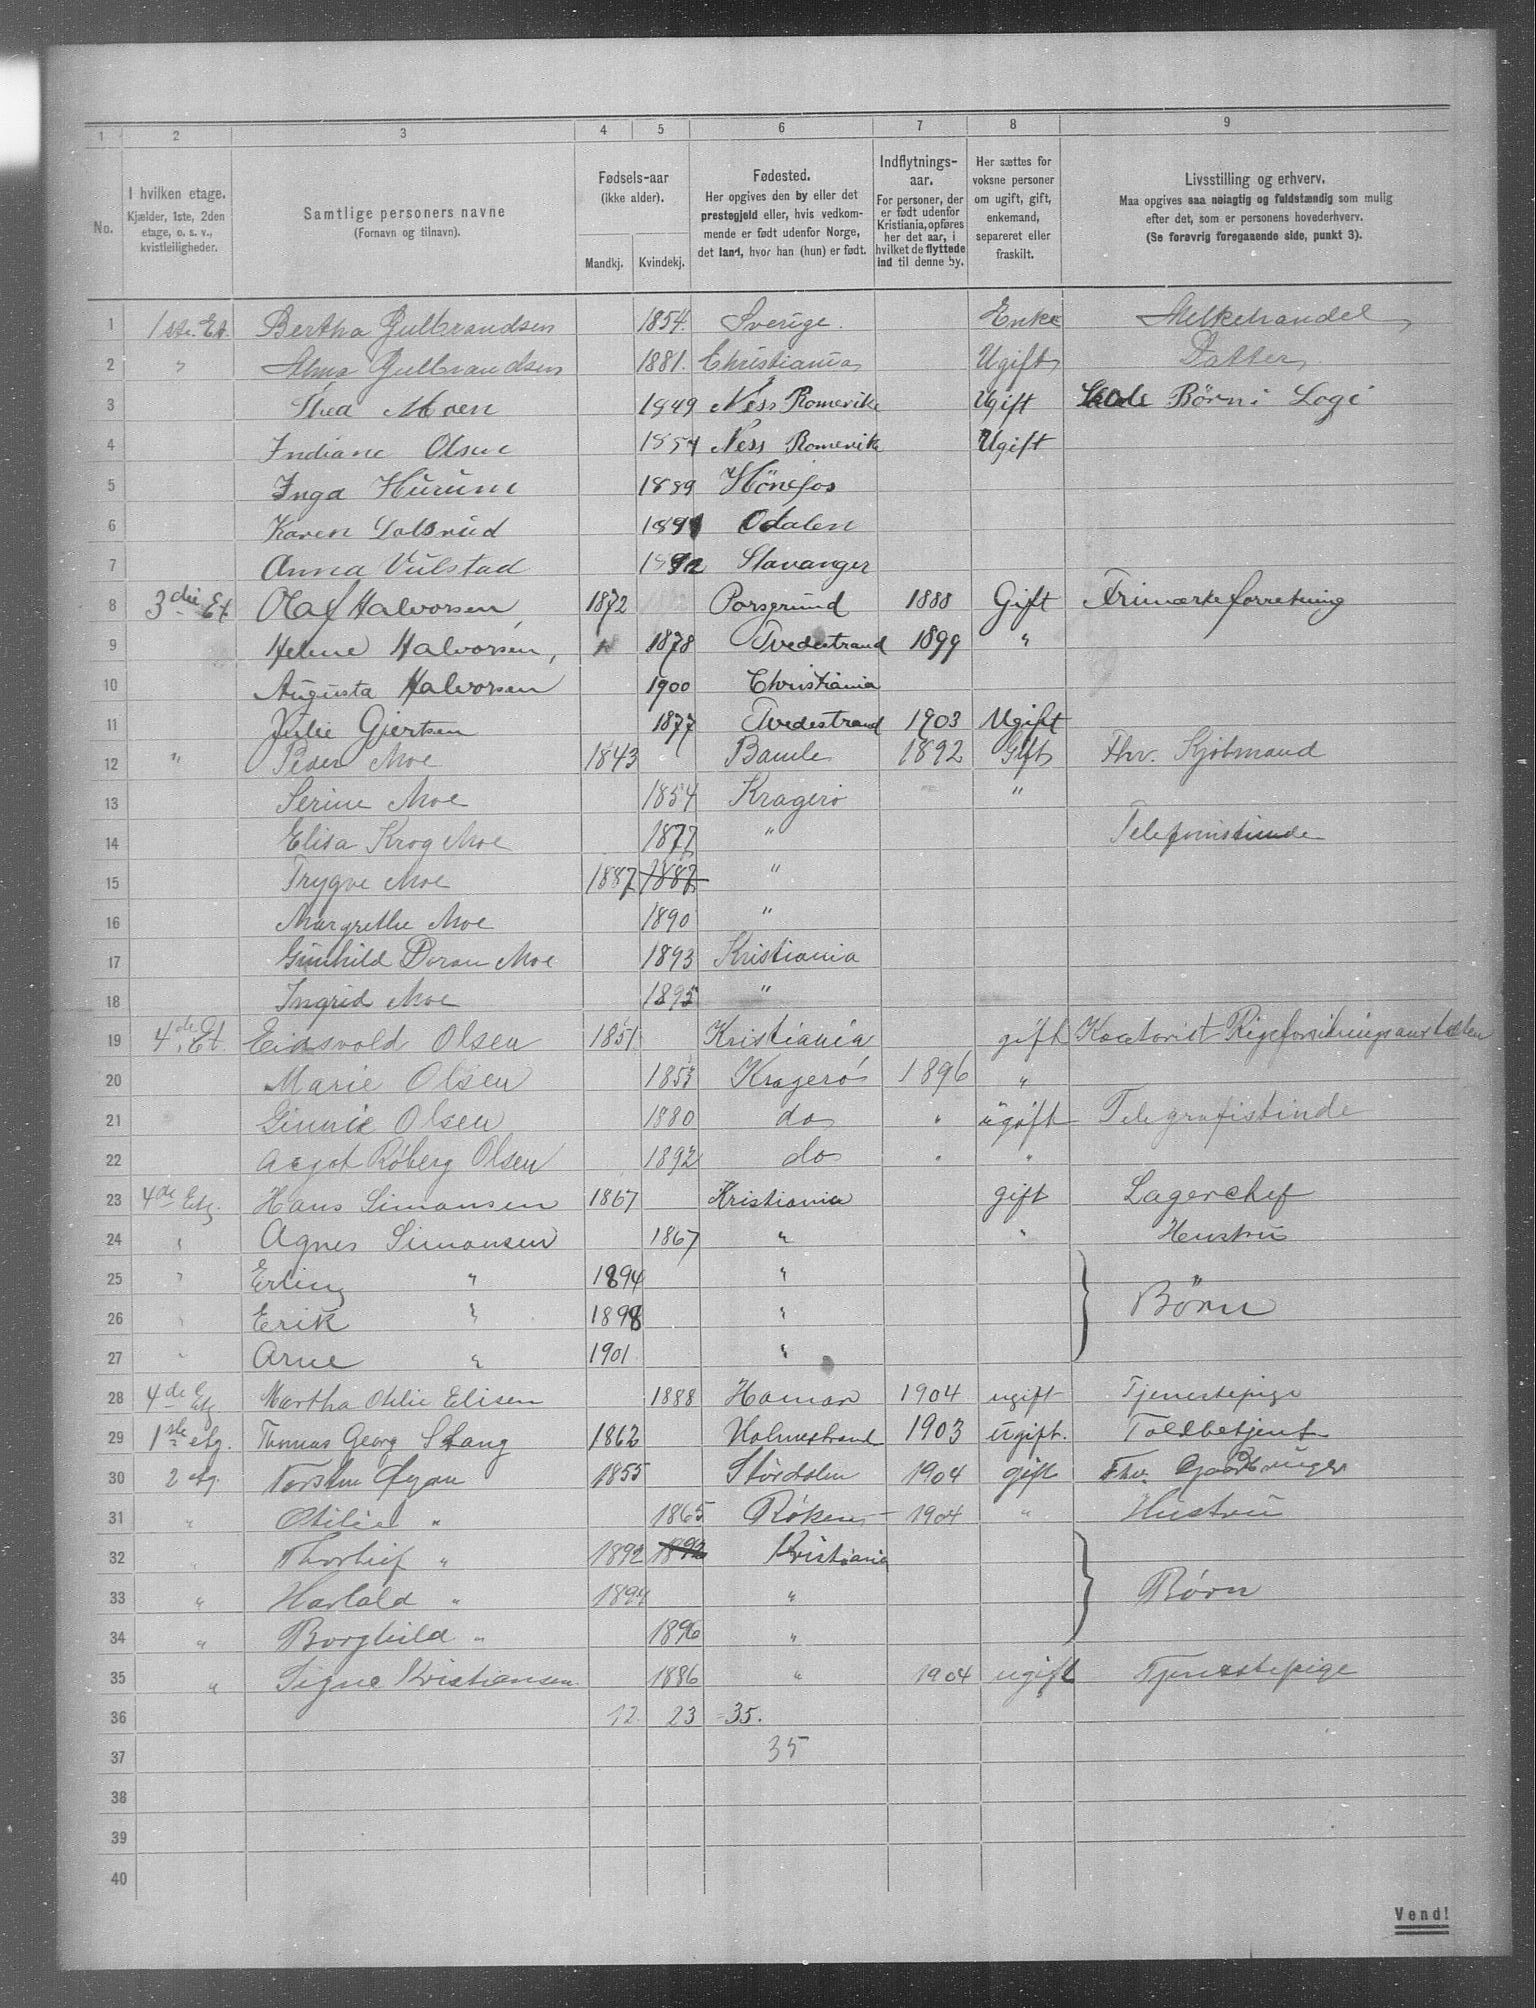 1 2 3 4 5 6 7 8 9
No. | I hvilken etage. Kjælder, 1ste, 2den etage, o. s. v., kvistleiligheder. | Samtlige personers navne (Fornavn og tilnavn). | Fødsels-aar (ikke alder). Mandkj. Kvindekj. | Fødested. Her opgives den by eller det prestegjeld eller, hvis vedkommende er født udenfor Norge, det land, hvor han (hun) er født. | Indflytnings-aar. For personer, der er født udenfor Kristiania, opføres her det aar, i hvilket de flyttede ind til denne by. | Her sættes for voksne personer om ugift, gift, enkemand, separeret eller fraskilt. | Livsstilling og erhverv. Maa opgives saa nøiagtig og fuldstændig som mulig efter det, som er personens hovederhverv. (Se forøvrig foregaaende side, punkt 3).
1 1ste. Et. Bertha Gulbrandsen 1854. Sverige. Enke Melkehandel
2 " Alma Gulbrandsen 1881. Christiania Ugift Datter
3 Thea Moen 1849 Ness Romerike Ugift Børn i Logi
4 Indiane Olsen 1854 Ness Romerike Ugift
5 Inga Hurum 1889 Hønefos
6 Karen Dolsrud 1891 Odalen
7 Anna Vulstad 1892 Stavanger
8 3die Et. Olaf Halvorsen, 1872 Porsgrund 1888 Gift Frimærkeforretning
9 Helene Halvorsen, 1878 Tvedestrand 1899 "
10 Augusta Halvorsen 1900 Christiania
11 Julie Gjertsen 1877 Tvedestrand 1903 Ugift
12 " Peder Moe 1843 Bamle 1892 Gift Fhv. Kjøbmand
13 Serine Moe 1854 Kragerø "
14 Elisa Krog Moe 1877 " Telefonistinde
15 Trygve Moe 1887 1887 "
16 Margrethe Moe 1890 "
17 Gunhild Doran Moe 1893 Kristiania
18 Ingrid Moe 1895 "
19 4de Et. Eidsvold Olsen 1851 Kristiania gift Kontorist Rigsforsikringsanstalten
20 Marie Olsen 1853 Kragerø 1896 "
21 Ginnie Olsen 1880 do " ugift Telegrafistinde
22 Aagot Røberg Olsen 1892 do " "
23 4de Etg. Hans Simonsen 1867 Kristiania gift Lagerchef
24 " Agnes Simonsen 1867 " " Hustru
25 " Erling " 1894 "
26 " Erik " 1898 " Børn
27 " Arne " 1901 "
28 4de Etg Martha Otilie Elisen 1888 Hamar 1904 ugift Tjenestepige
29 1ste etg. Thomas Georg Stang 1862 Holmestrand 1903 ugift. Toldbetjent
30 2 etg. Torsten Øyan 1855 Stördalen 1904 gift Fhv. Gaardbruger
31 " Otilie " 1865 Røken 1904 " Hustru
32 " Thorleif " 1892 1892 Kristiania
33 " Harald " 1894 " Børn
34 " Borghild " 1896 "
35 " Signe Kristiansen 1886 " 1904 ugift Tjenestepige
36 12. 23 = 35.
37 35
38
39
40
Vend!